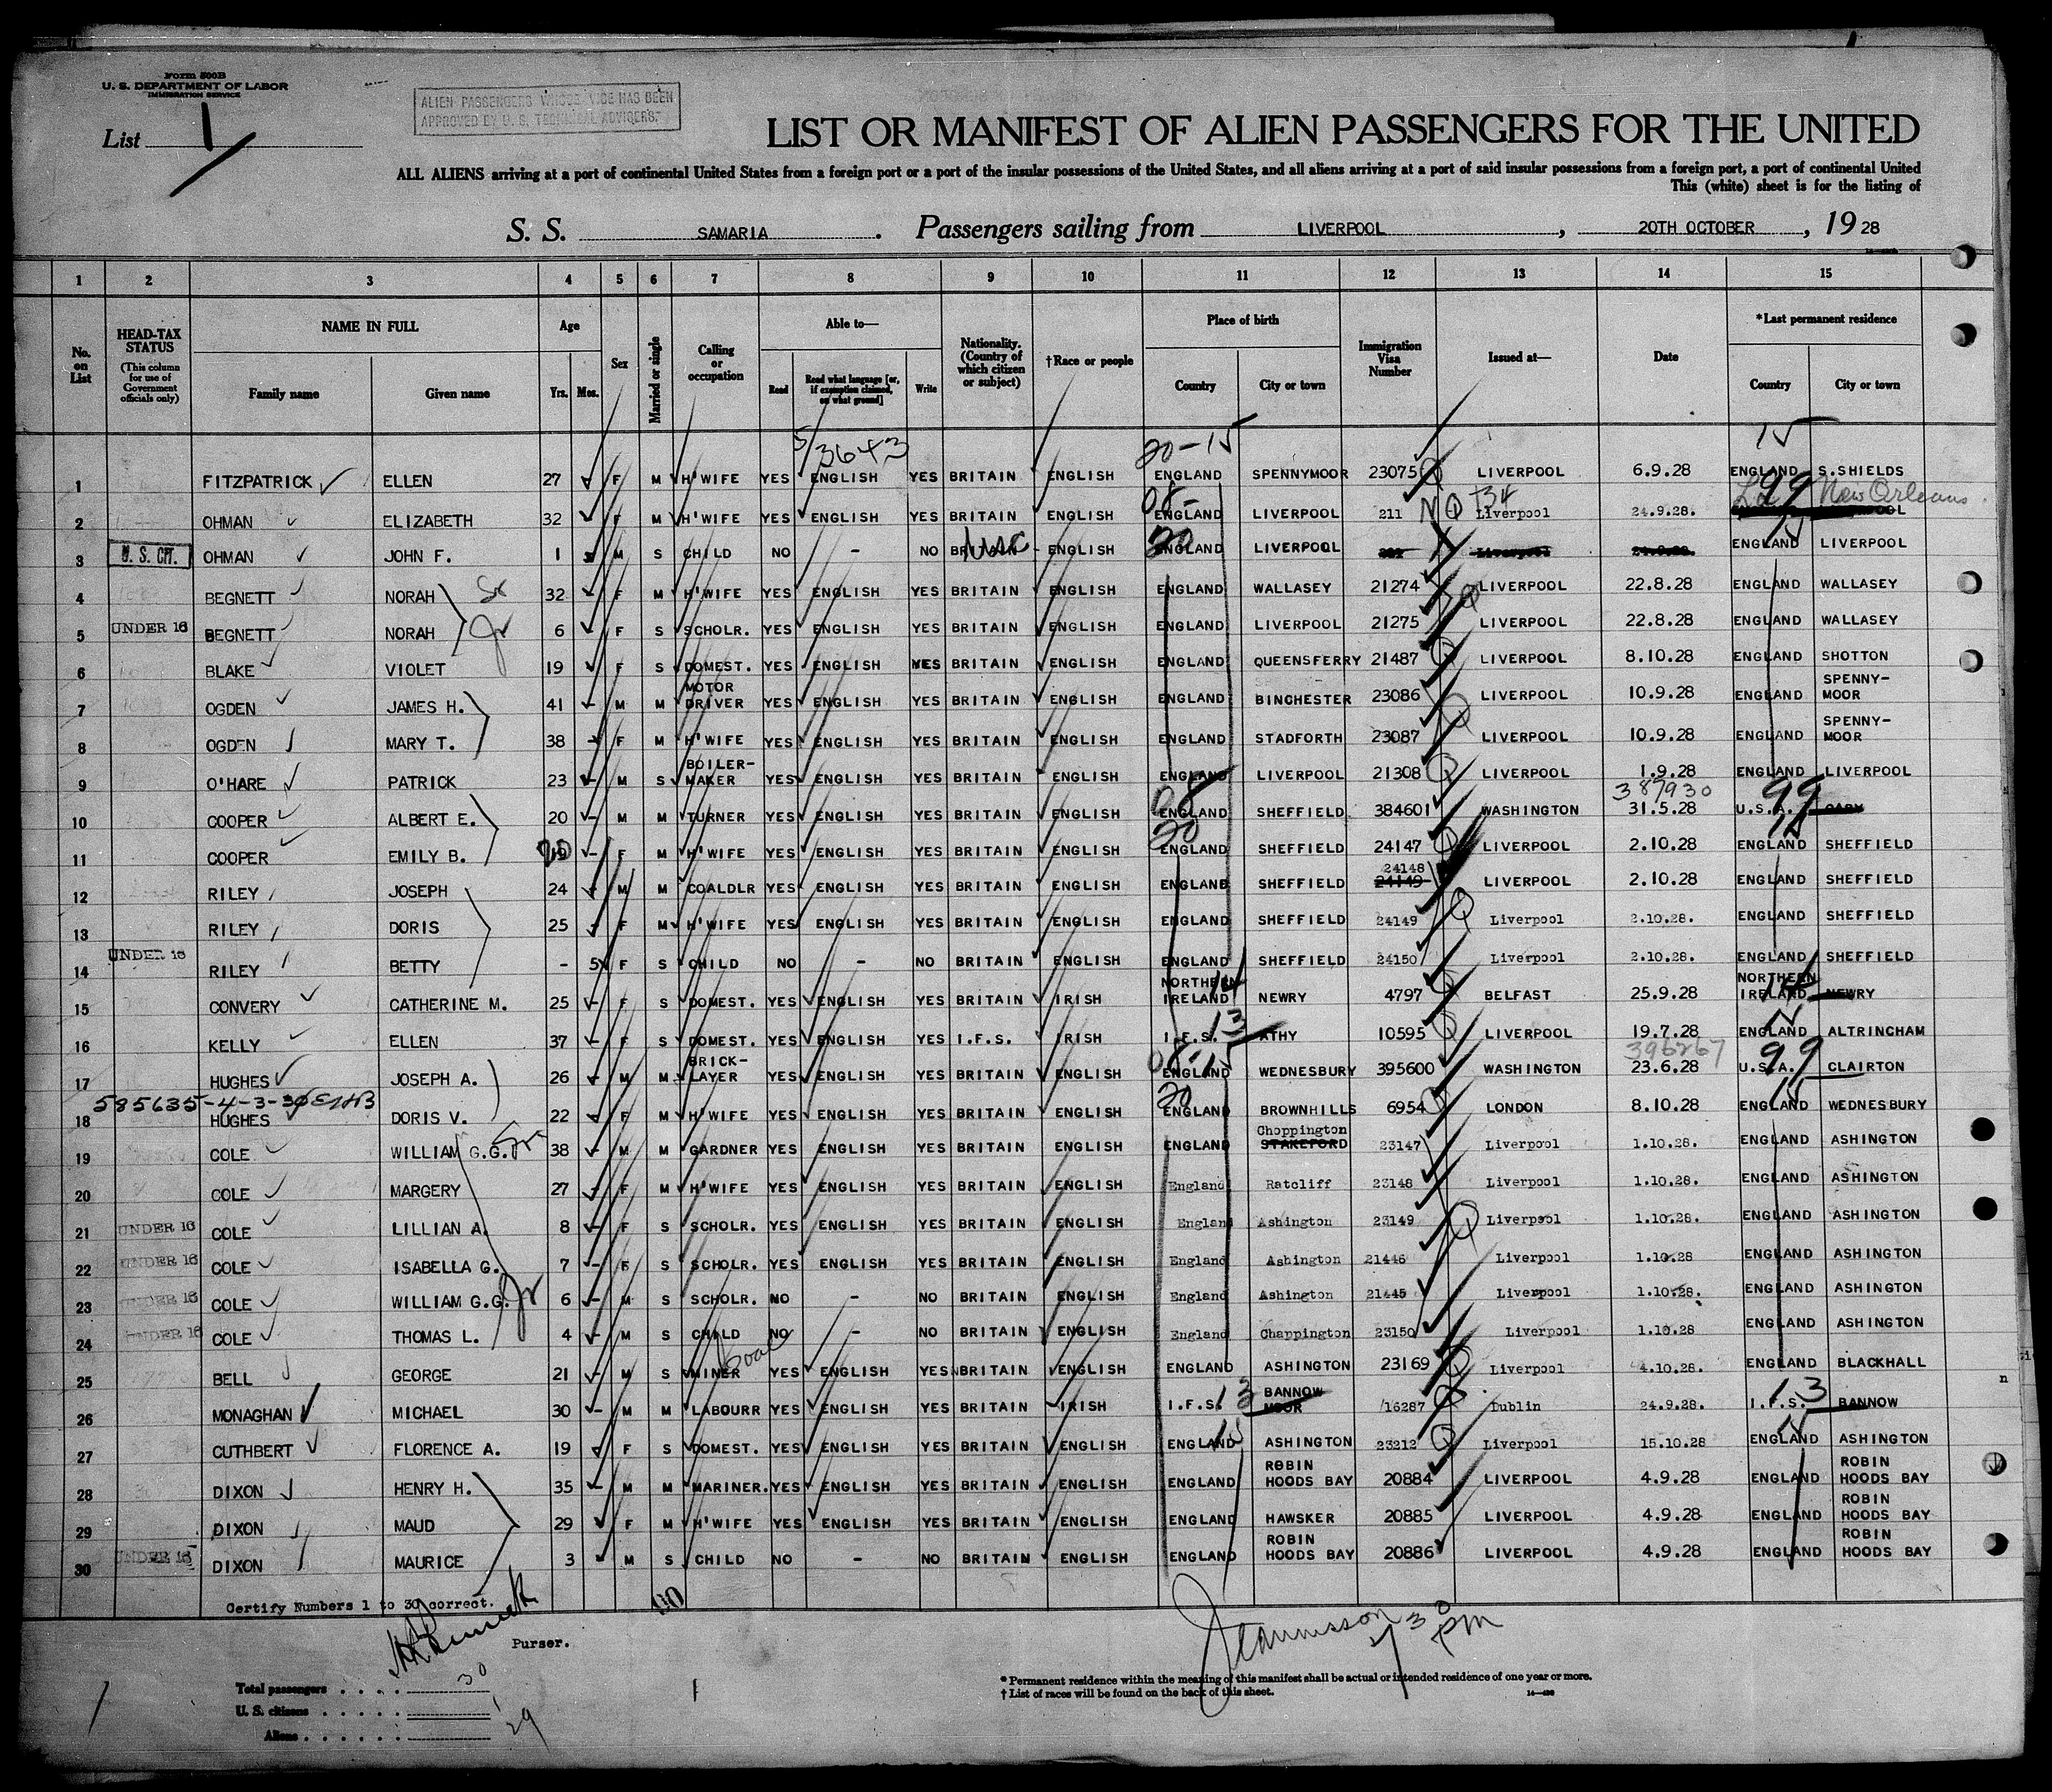 Form 500B
U. S. DEPARTMENT OF LABOR
IMMIGRATION SERVICE
List 1
ALIEN PASSENGERS WHOSE VICE HAS BEEN
APPROVED BY U. S. TECHNICAL ADVISERS.
LIST OR MANIFEST OF ALIEN PASSENGERS FOR THE UNITED
ALL ALIENS arriving at a port of continental United States from a foreign port or a port of the insular possessions of the United States, and all aliens arriving at a port of said insular possessions from a foreign port, a port of continental United
This (white) sheet is for the listing of
S. S. SAMARIA. Passengers sailing from LIVERPOOL, 20TH OCTOBER, 1928
1 2 3 4 5 6 7 8 9 10 11 12 13 14 15
No. on List
HEAD-TAX STATUS (This column for use of Government officials only)
NAME IN FULL Family name Given name
Age Yrs. Mos.
Sex
Married or single
Calling or occupation
Able to— Read Read what language [or, if exemption claimed, on what ground] Write
Nationality. (Country of which citizen or subject)
†Race or people
Place of birth Country City or town
Immigration Visa Number
Issued at—
Date
*Last permanent residence Country City or town
5/3643 20-15 15
1 FITZPATRICK ELLEN 27 F M H'WIFE YES ENGLISH YES BRITAIN ENGLISH ENGLAND SPENNYMOOR 23075 LIVERPOOL 6.9.28 ENGLAND S.SHIELDS
2 OHMAN ELIZABETH 32 F M H'WIFE YES ENGLISH YES BRITAIN ENGLISH 08- ENGLAND LIVERPOOL 211 NQ Liverpool 24.9.28. La 99 New Orleans
3 U. S. CIT. OHMAN JOHN F. 1 M S CHILD NO - NO BRITAIN USC ENGLISH 20 ENGLAND LIVERPOOL Liverpool 24.9.28. ENGLAND LIVERPOOL
4 BEGNETT NORAH Sr 32 F M H'WIFE YES ENGLISH YES BRITAIN ENGLISH ENGLAND WALLASEY 21274 LIVERPOOL 22.8.28 ENGLAND WALLASEY
5 UNDER 16 BEGNETT NORAH Jr 6 F S SCHOLR. YES ENGLISH YES BRITAIN ENGLISH ENGLAND LIVERPOOL 21275 LIVERPOOL 22.8.28 ENGLAND WALLASEY
6 BLAKE VIOLET 19 F S DOMEST. YES ENGLISH YES BRITAIN ENGLISH ENGLAND QUEENSFERRY 21487 LIVERPOOL 8.10.28 ENGLAND SHOTTON
7 OGDEN JAMES H. 41 M M MOTOR DRIVER YES ENGLISH YES BRITAIN ENGLISH ENGLAND BINCHESTER 23086 LIVERPOOL 10.9.28 ENGLAND SPENNY-MOOR
8 OGDEN MARY T. 38 F M H'WIFE YES ENGLISH YES BRITAIN ENGLISH ENGLAND STADFORTH 23087 LIVERPOOL 10.9.28 ENGLAND SPENNY-MOOR
9 O'HARE PATRICK 23 M S BOILER-MAKER YES ENGLISH YES BRITAIN ENGLISH ENGLAND LIVERPOOL 21308 LIVERPOOL 1.9.28 ENGLAND LIVERPOOL
10 COOPER ALBERT E. 20 M M TURNER YES ENGLISH YES BRITAIN ENGLISH 08 ENGLAND SHEFFIELD 384601 WASHINGTON 387930 31.5.28 U.S.A. 99 GARY
11 COOPER EMILY B. 20 19 F M H'WIFE YES ENGLISH YES BRITAIN ENGLISH 20 ENGLAND SHEFFIELD 24147 LIVERPOOL 2.10.28 ENGLAND SHEFFIELD
12 RILEY JOSEPH 24 M M COALDLR YES ENGLISH YES BRITAIN ENGLISH ENGLAND SHEFFIELD 24148 24149 LIVERPOOL 2.10.28 ENGLAND SHEFFIELD
13 RILEY DORIS 25 F M H'WIFE YES ENGLISH YES BRITAIN ENGLISH ENGLAND SHEFFIELD 24149 Liverpool 2.10.28. ENGLAND SHEFFIELD
14 UNDER 16 RILEY BETTY - 5 F S CHILD NO - NO BRITAIN ENGLISH ENGLAND SHEFFIELD 24150 Liverpool 2.10.28. ENGLAND SHEFFIELD
15 CONVERY CATHERINE M. 25 F S DOMEST. YES ENGLISH YES BRITAIN IRISH NORTHERN IRELAND 14 NEWRY 4797 BELFAST 25.9.28 NORTHERN IRELAND 14 NEWRY
16 KELLY ELLEN 37 F S DOMEST. YES ENGLISH YES I.F.S. IRISH I.F.S. 13 ATHY 10595 LIVERPOOL 19.7.28 ENGLAND ALTRINCHAM
17 HUGHES JOSEPH A. 26 M M BRICK-LAYER YES ENGLISH YES BRITAIN ENGLISH 08-15 ENGLAND WEDNESBURY 395600 WASHINGTON 396267 23.6.28 U.S.A. 99 CLAIRTON
585635-4-3-36
18 HUGHES DORIS V. 22 F M H'WIFE YES ENGLISH YES BRITAIN ENGLISH 20 ENGLAND BROWNHILLS 6954 LONDON 8.10.28 ENGLAND WEDNESBURY
19 COLE WILLIAM G.G. Sr 38 M M GARDNER YES ENGLISH YES BRITAIN ENGLISH ENGLAND Choppington STAKEFORD 23147 Liverpool 1.10.28. ENGLAND ASHINGTON
20 COLE MARGERY 27 F M H'WIFE YES ENGLISH YES BRITAIN ENGLISH England Ratcliff 23148 Liverpool 1.10.28. ENGLAND ASHINGTON
21 UNDER 16 COLE LILLIAN A. 8 F S SCHOLR. YES ENGLISH YES BRITAIN ENGLISH England Ashington 23149 Liverpool 1.10.28. ENGLAND ASHINGTON
22 UNDER 16 COLE ISABELLA G. 7 F S SCHOLR. YES ENGLISH YES BRITAIN ENGLISH England Ashington 21446 Liverpool 1.10.28 ENGLAND ASHINGTON
23 UNDER 16 COLE WILLIAM G.G. Jr 6 M S SCHOLR. NO - NO BRITAIN ENGLISH England Ashington 21445 Liverpool 1.10.28. ENGLAND ASHINGTON
24 UNDER 16 COLE THOMAS L. 4 M S CHILD NO - NO BRITAIN ENGLISH England Chappington 23150 Liverpool 1.10.28 ENGLAND ASHINGTON
25 BELL GEORGE 21 M S MINER Coal YES ENGLISH YES BRITAIN ENGLISH ENGLAND ASHINGTON 23169 Liverpool 4.10.28. ENGLAND BLACKHALL
26 MONAGHAN MICHAEL 30 M M LABOURR YES ENGLISH YES BRITAIN IRISH I.F.S. 13 BANNOW MOOR 16287 Dublin 24.9.28. I.F.S. 13 BANNOW
27 CUTHBERT FLORENCE A. 19 F S DOMEST. YES ENGLISH YES BRITAIN ENGLISH ENGLAND 15 ASHINGTON 23212 Liverpool 15.10.28 ENGLAND ASHINGTON
28 DIXON HENRY H. 35 M M MARINER. YES ENGLISH YES BRITAIN ENGLISH ENGLAND ROBIN HOODS BAY 20884 LIVERPOOL 4.9.28 ENGLAND ROBIN HOODS BAY
29 DIXON MAUD 29 F M H'WIFE YES ENGLISH YES BRITAIN ENGLISH ENGLAND HAWSKER 20885 LIVERPOOL 4.9.28 ENGLAND ROBIN HOODS BAY
30 UNDER 16 DIXON MAURICE 3 M S CHILD NO - NO BRITAIN ENGLISH ENGLAND ROBIN HOODS BAY 20886 LIVERPOOL 4.9.28 ENGLAND ROBIN HOODS BAY
Certify Numbers 1 to 30 correct.
Purser.
730 pm
Total passengers . . . . 30
U. S. citizens . . . . . 1
Aliens . . . . . . 29
* Permanent residence within the meaning of this manifest shall be actual or intended residence of one year or more.
† List of races will be found on the back of this sheet.